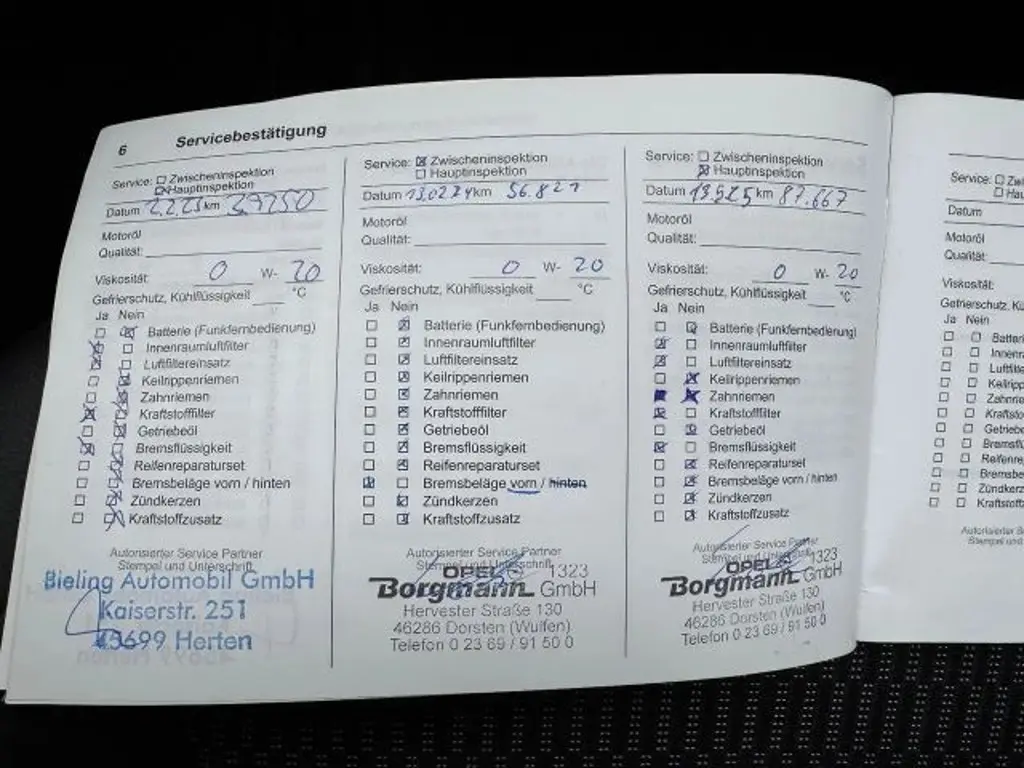 6 Servicebestätigung
Service: Zwischeninspektion
Hauptinspektion
Datum 2.2.23 km 39250
Motoröl
Qualität:
Viskosität: 0 W- 20
Gefrierschutz, Kühlflüssigkeit °C
Ja Nein
Batterie (Funkfernbedienung)
Innenraumluftfilter
Luftfiltereinsatz
Keilrippenriemen
Zahnriemen
Kraftstofffilter
Getriebeöl
Bremsflüssigkeit
Reifenreparaturset
Bremsbeläge vorn / hinten
Zündkerzen
Kraftstoffzusatz
Autorisierter Service Partner
Stempel und Unterschrift
Bieling Automobil GmbH
Kaiserstr. 251
45699 Herten
Service: Zwischeninspektion
Hauptinspektion
Datum 13.02.24 km 56.821
Motoröl
Qualität:
Viskosität: 0 W- 20
Gefrierschutz, Kühlflüssigkeit °C
Ja Nein
Batterie (Funkfernbedienung)
Innenraumluftfilter
Luftfiltereinsatz
Keilrippenriemen
Zahnriemen
Kraftstofffilter
Getriebeöl
Bremsflüssigkeit
Reifenreparaturset
Bremsbeläge vorn / hinten
Zündkerzen
Kraftstoffzusatz
Autorisierter Service Partner
Stempel und Unterschrift
OPEL 1323
Borgmann GmbH
Hervester Straße 130
46286 Dorsten (Wulfen)
Telefon 0 23 69 / 91 50 0
Service: Zwischeninspektion
Hauptinspektion
Datum 19.5.25 km 87.667
Motoröl
Qualität:
Viskosität: 0 W- 20
Gefrierschutz, Kühlflüssigkeit °C
Ja Nein
Batterie (Funkfernbedienung)
Innenraumluftfilter
Luftfiltereinsatz
Keilrippenriemen
Zahnriemen
Kraftstofffilter
Getriebeöl
Bremsflüssigkeit
Reifenreparaturset
Bremsbeläge vorn / hinten
Zündkerzen
Kraftstoffzusatz
Autorisierter Service Partner
Stempel und Unterschrift
OPEL 1323
Borgmann GmbH
Hervester Straße 130
46286 Dorsten (Wulfen)
Telefon 0 23 69 / 91 50 0
Service: Zwi
Hau
Datum
Motoröl
Qualität:
Viskosität:
Gefrierschutz, Kü
Ja Nein
Batteri
Innenr
Luftfil
Keilrip
Zahnri
Kraftst
Getrieb
Bremsfl
Reifenr
Bremsbe
Zündker
Kraftsto
Autorisierter
Stempel und